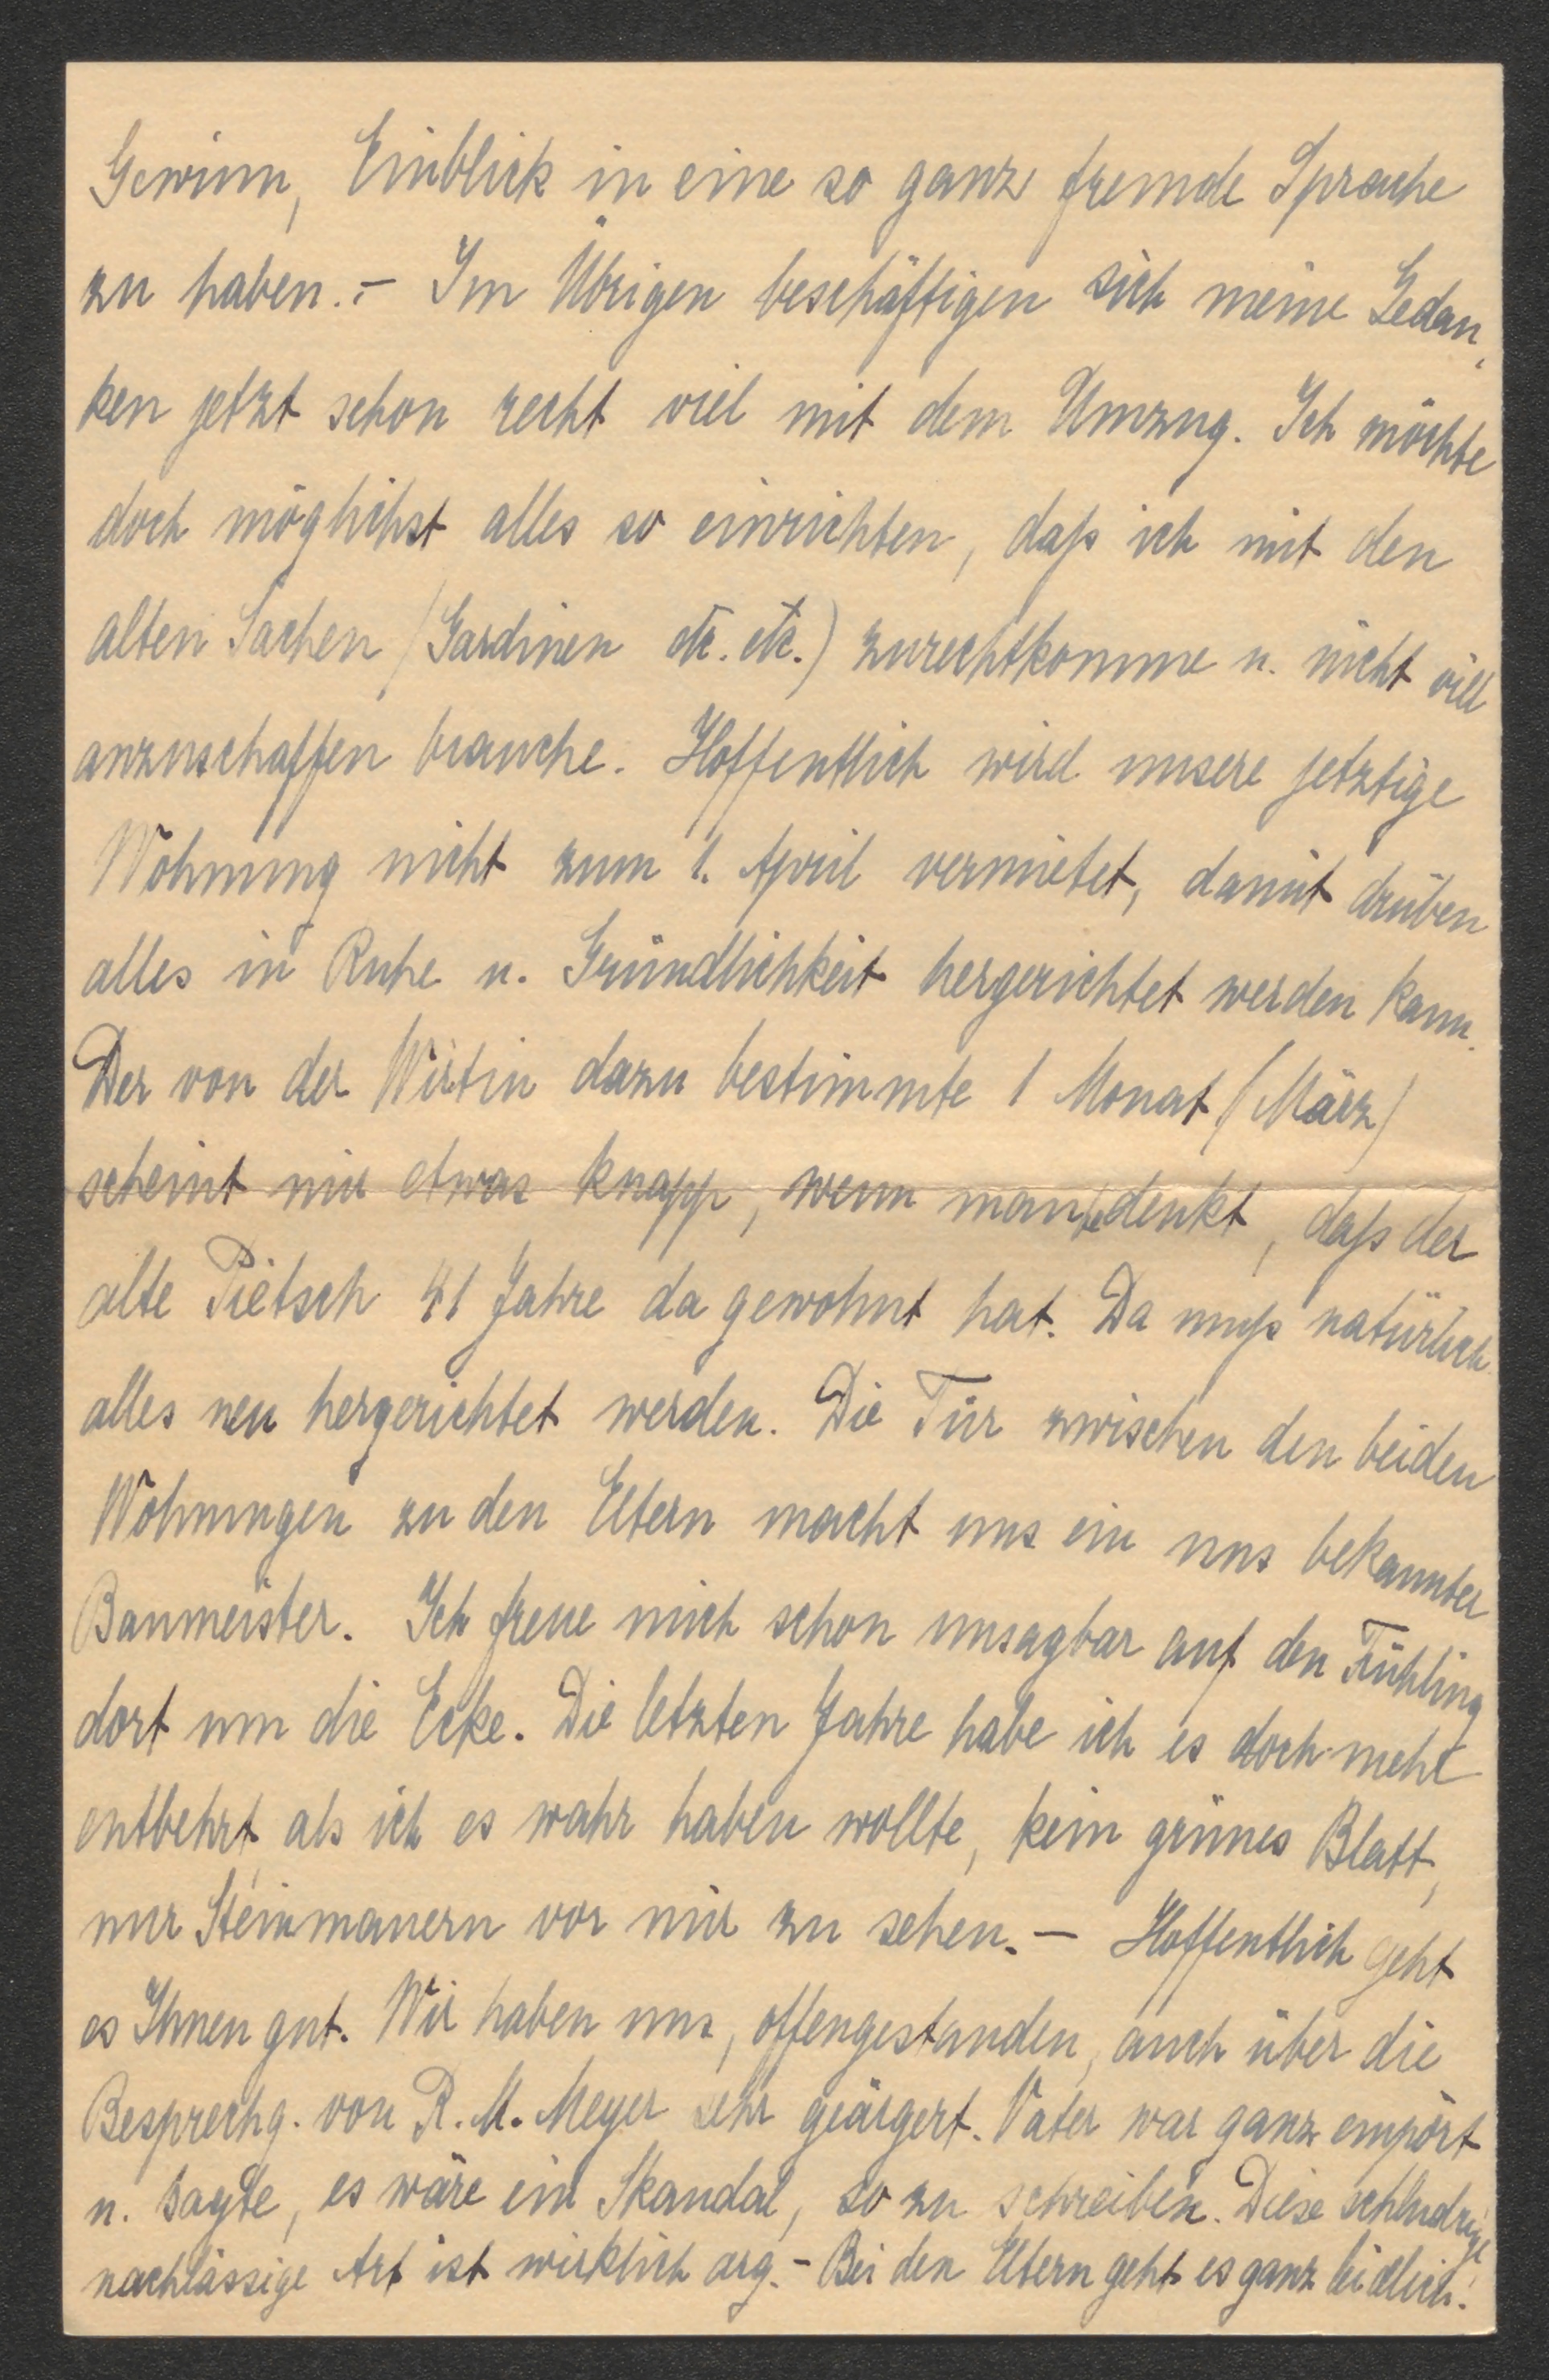 Gewinn, Einblick in eine so ganz fremde Sprache
zu haben. – Im Übrigen beschäftigen sich meine Gedan-
ken jetzt schon recht viel mit dem Umzug. Ich möchte
doch möglichst alles so einrichten, daß ich mit den
alten Sachen (Gardinen etc. etc.) zurechtkomme u. nicht viel
anzuschaffen brauche. Hoffentlich wird unsere jetztige
Wohnung nicht zum 1. April vermietet, damit drüben
alles in Ruhe u. Gründlichkeit hergerichtet werden kann.
Der von der Wirtin dazu bestimmte 1 Monat (März)
scheint mir etwas knapp, wenn man bedenkt, daß der
alte Pietsch 41 Jahre da gewohnt hat. Da muß natürlich
alles neu hergerichtet werden. Die Tür zwischen den beiden
Wohnungen zu den Eltern macht uns ein uns bekannter
Baumeister. Ich freue mich schon unsagbar auf den Frühling
dort um die Ecke. Die letzten Jahre habe ich es doch mehr
entbehrt, als ich es wahr haben wollte, kein grünes Blatt,
nur Steinmauern vor mir zu sehen. – Hoffentlich geht
es Ihnen gut. Wir haben uns, offengestanden, auch über die
Besprechg. von R. M. Meyer sehr geärgert. Vater war ganz empört
u. sagte, es wäre ein Skandal, so zu schreiben. Diese schludrige
nachlässige Art ist wirklich arg. – Bei den Eltern geht es ganz leidlich.